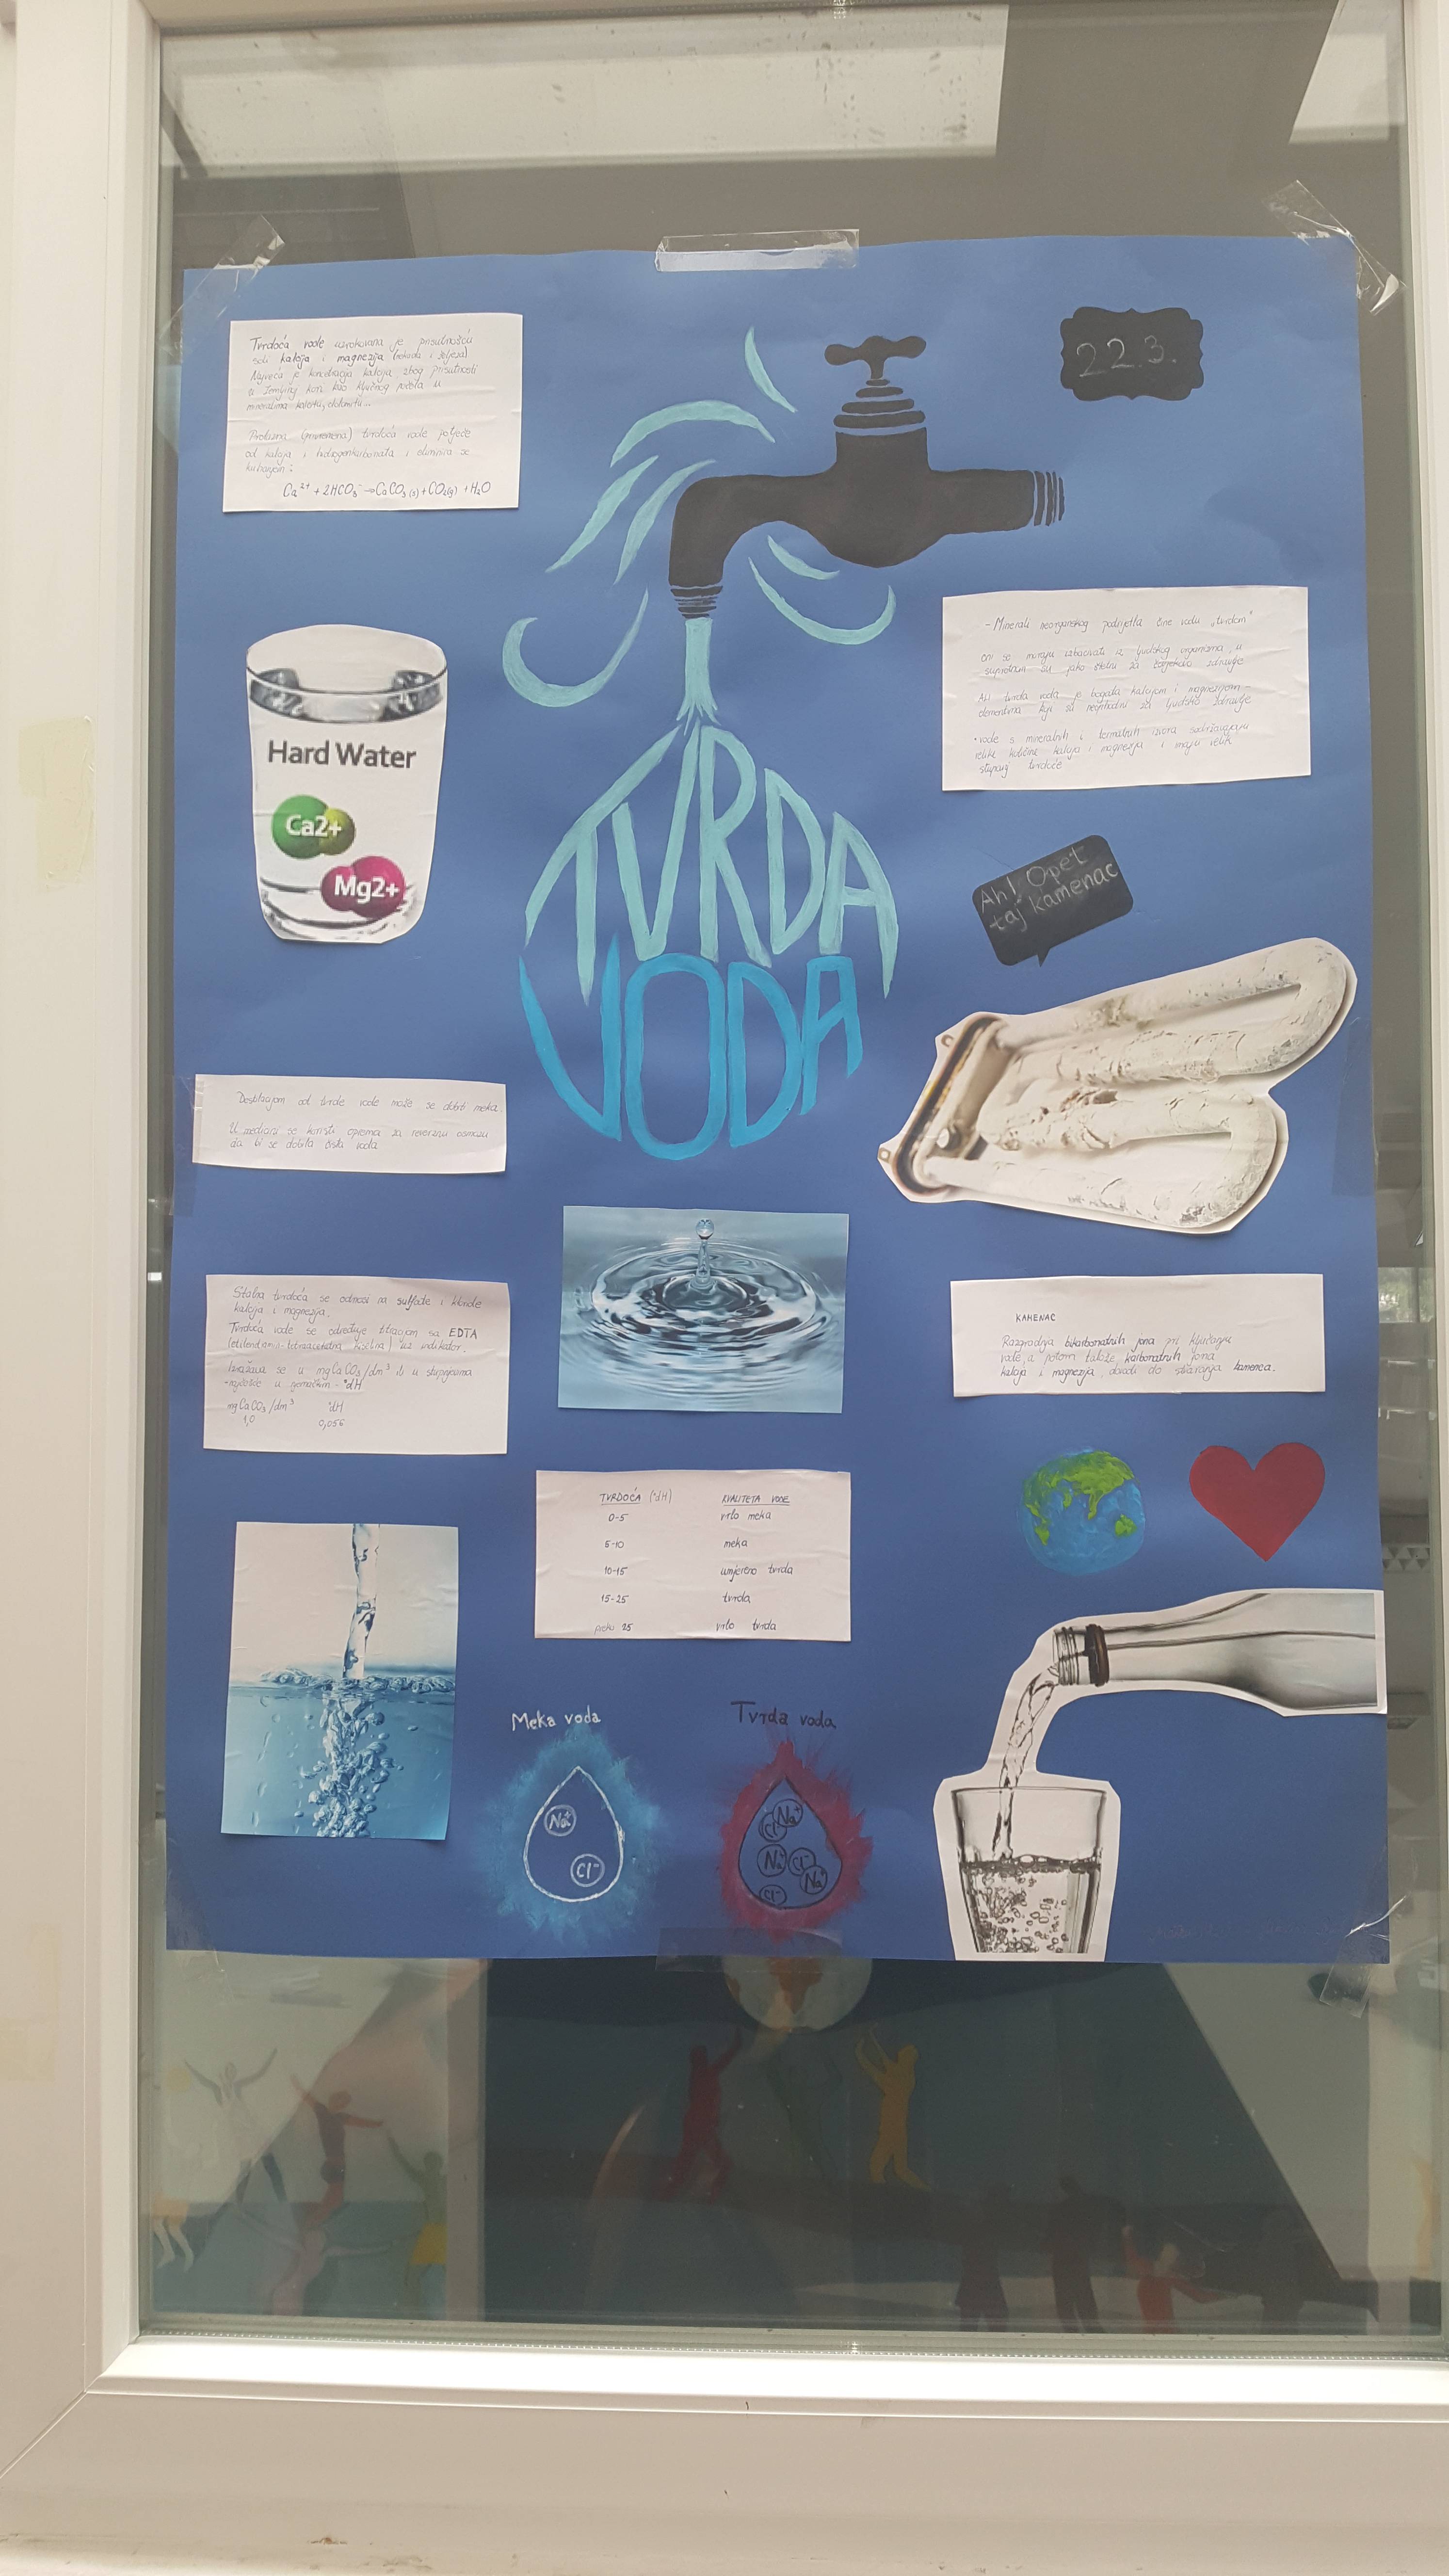 22.3.
Tvrdoća vode uzrokovana je prisutnošću
soli kalcija i magnezija
Najveća je koncentracija kalcija zbog prisutnosti
u Zemljinoj kori kao ključnog počela u
mineralima kalcitu, dolomitu...
Prolazna (privremena) tvrdoća vode potječe
od kalcija i hidrogenkarbonata i eliminira se
kuhanjem:
Ca²⁺ + 2HCO₃⁻ → CaCO₃(s) + CO₂(g) + H₂O
- Minerali neorganskog podrijetla čine vodu „tvrdom"
oni se moraju izbacivati iz ljudskog organizma, u
suprotnom su jako štetni za čovjekovo zdravlje
Ali tvrda voda je bogata kalcijem i magnezijem -
elementima koji su neophodni za ljudsko zdravlje
• vode s mineralnih i termalnih izvora sadržavaju
velike količine kalcija i magnezija i imaju velik
stupanj tvrdoće
Hard Water
Ca2+
Mg2+
TVRDA
VODA
Ah! Opet
taj kamenac
Destilacijom od tvrde vode može se dobiti meka.
U medicini se koristi oprema za reverznu osmozu
da bi se dobila čista voda
Stalna tvrdoća se odnosi na sulfate i kloride
kalcija i magnezija.
Tvrdoća vode se određuje titracijom sa EDTA
(etilendiamin-tetraacetatna kiselina) uz indikator.
Izražava se u mgCaCO₃/dm³ ili u stupnjevima
-najčešće u njemačkim - °dH
mgCaCO₃/dm³ °dH
1,0 0,056
KAMENAC
Razgradnja bikarbonatnih iona pri ključanju
vode, a potom taloženje karbonatnih iona
kalcija i magnezija, dovodi do stvaranja kamenca.
TVRDOĆA (°dH) KVALITETA VODE
0-5 vrlo meka
5-10 meka
10-15 umjereno tvrda
15-25 tvrda
preko 25 vrlo tvrda
Meka voda
Tvrda voda
Na⁺
Cl⁻
Na⁺
Cl⁻
Na⁺
Cl⁻
Na⁺
Cl⁻